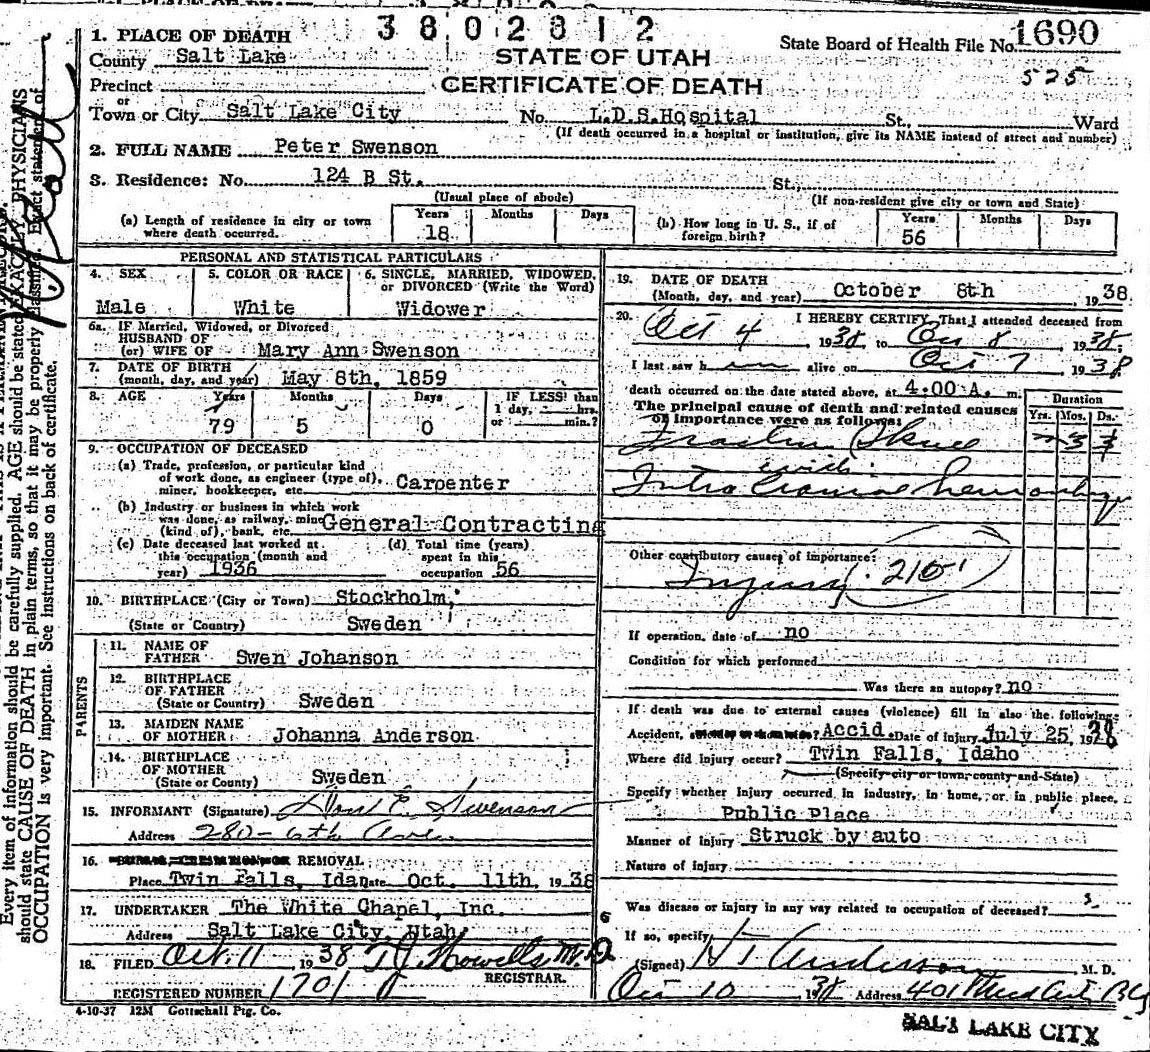 3802812
1. PLACE OF DEATH
County Salt Lake
STATE OF UTAH
State Board of Health File No. 1690
525
Precinct
CERTIFICATE OF DEATH
or
Town or City Salt Lake City No. L.D.S.Hospital St., Ward
(If death occurred in a hospital or institution, give its NAME instead of street and number)
2. FULL NAME Peter Swenson
3. Residence: No. 124 B St. St.
(Usual place of abode) (If non-resident give city or town and State)
(a) Length of residence in city or town where death occurred. Years 18 Months Days
(b) How long in U. S., if of foreign birth? Years 56 Months Days
PERSONAL AND STATISTICAL PARTICULARS
4. SEX Male
5. COLOR OR RACE White
6. SINGLE, MARRIED, WIDOWED, or DIVORCED (Write the Word) Widower
6a. IF Married, Widowed, or Divorced
HUSBAND OF
(or) WIFE OF Mary Ann Swenson
7. DATE OF BIRTH
(month, day, and year) May 8th, 1859
8. AGE Years 79 Months 5 Days 0 IF LESS than 1 day, hrs. or min.?
9. OCCUPATION OF DECEASED
(a) Trade, profession, or particular kind
of work done, as engineer (type of),
miner, bookkeeper, etc. Carpenter
(b) Industry or business in which work
was done, as railway, mine
(kind of), bank, etc. General Contracting
(c) Date deceased last worked at
this occupation (month and
year) 1936
(d) Total time (years)
spent in this
occupation 56
10. BIRTHPLACE (City or Town) Stockholm,
(State or Country) Sweden
PARENTS
11. NAME OF
FATHER Swen Johanson
12. BIRTHPLACE
OF FATHER
(State or Country) Sweden
13. MAIDEN NAME
OF MOTHER Johanna Anderson
14. BIRTHPLACE
OF MOTHER
(State or County) Sweden
15. INFORMANT (Signature) E. Swenson
Address 280 - 6th Ave.
16. REMOVAL
Place Twin Falls, Ida Date Oct. 11th, 1938
17. UNDERTAKER The White Chapel, Inc.
Address Salt Lake City, Utah
18. FILED Oct. 11 1938 T J Howells M.D.
REGISTRAR.
REGISTERED NUMBER 1701
4-10-37 12M Gottschall Ptg. Co.
19. DATE OF DEATH
(Month, day, and year) October 8th, 1938
20. I HEREBY CERTIFY, That I attended deceased from
Oct 4, 1938, to Oct 8 1938.
I last saw him alive on Oct 7 1938
death occurred on the date stated above, at 4:00 A. m.
The principal cause of death and related causes
of importance were as follows:
Duration
Yrs. Mos. Ds.
Fracture Skull
with
Intra Cranial hemorrhage
Other contributory causes of importance:
Injury 210
If operation, date of no
Condition for which performed
Was there an autopsy? no
If death was due to external causes (violence) fill in also the following:
Accident, ? Accid. Date of injury July 25, 1938
Where did injury occur? Twin Falls, Idaho
(Specify city or town, county and State)
Specify whether injury occurred in industry, in home, or in public place,
Public Place
Manner of injury Struck by auto
Nature of injury
Was disease or injury in any way related to occupation of deceased?
If so, specify
(Signed) H T Anderson M. D.
Oct 10 1938 Address 401 Med Arts Bldg
SALT LAKE CITY
Every item of information should be carefully supplied. AGE should be stated EXACTLY. PHYSICIANS
should state CAUSE OF DEATH in plain terms, so that it may be properly classified. Exact statement of
OCCUPATION is very important. See instructions on back of certificate.